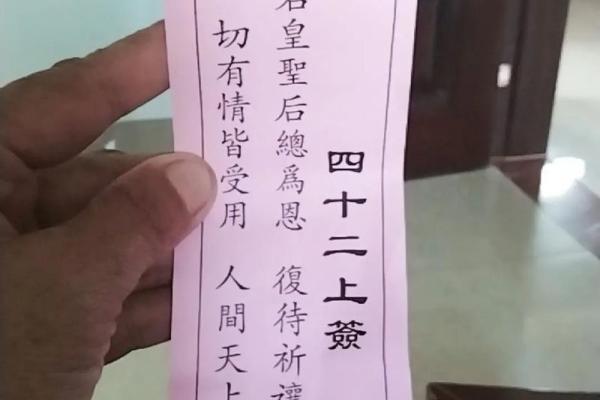 四十二上簽
君皇聖后總爲恩 復待祈禳
切有情皆受用 人間天上